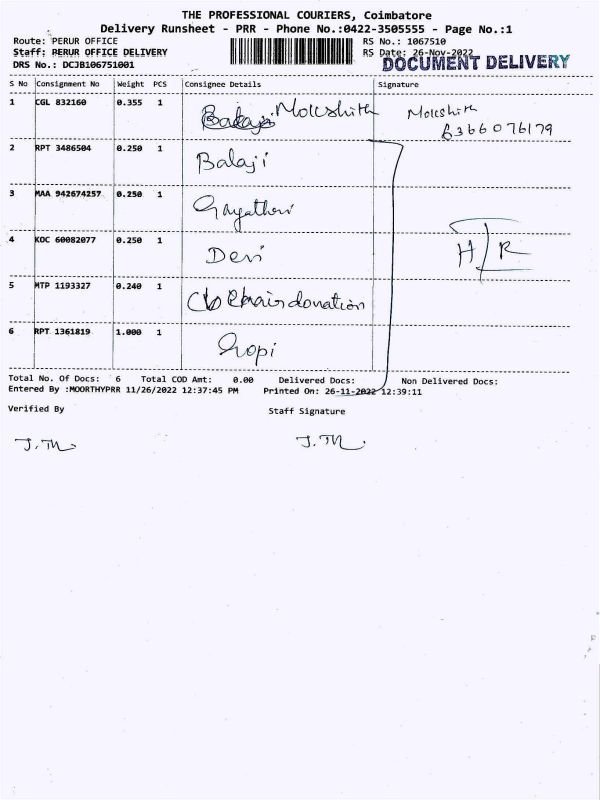 THE PROFESSIONAL COURIERS, Coimbatore
Delivery Runsheet - PRR - Phone No.:0422-3505555 - Page No.:1
Route: PERUR OFFICE RS No.: 1067510
Staff: PERUR OFFICE DELIVERY RS Date: 26-Nov-2022
DOCUMENT DELIVERY
DRS No.: DCJB106751001
S No Consignment No Weight PCS Consignee Details Signature
1 CGL 832160 0.355 1 Balaji Mokshith Mokshith
6366076179
2 RPT 3486504 0.250 1 Balaji
3 MAA 942674257 0.250 1 Gayathri
4 KOC 60082077 0.250 1 Devi H/R
5 MTP 1193327 0.240 1 hair donation
6 RPT 1361819 1.000 1 Gopi
Total No. Of Docs: 6 Total COD Amt: 0.00 Delivered Docs: Non Delivered Docs:
Entered By :MOORTHYPRR 11/26/2022 12:37:45 PM Printed On: 26-11-2022 12:39:11
Verified By Staff Signature